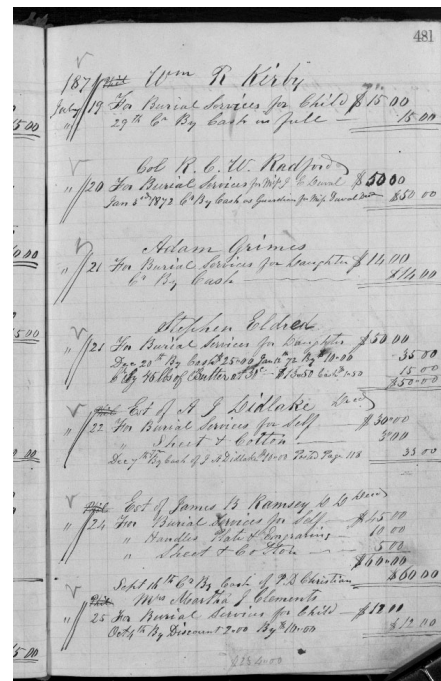 481
187 Wm R Kirby
July 19 For Burial Services for Child $15 00
" 29th Cr By Cash in full 15 00
Col R. C. W. Radford
" 20 For Burial Services for Miss J. Duval $50 00
Jan 3rd 1872 Cr By Cash as Guardian for Miss Duval $50 00
Adam Grimes
" 21 For Burial Services for Daughter $14 00
Cr By Cash $14 00
Stephen Eldred
" 21 For Burial Services for Daughter $50 00
Dec 20th By Cash 25-00 Jan 72 By 10-00 35 00
By lbs of Butter at 15 00
$50-00
Est of A J Didlake Decd
" 22 For Burial Services for Self $30-00
" Sheet & Cotton 3 00
Dec 7th By Cash of J A Didlake Posted Page 118 33 00
Est of James B Ramsey D D Decd
" 24 For Burial Services for Self $45 00
" Handles, Plate & Engraving 10 00
" Sheet & Cotton 5 00
$60-00
Sept 16th Cr By Cash of P. D Christian $60 00
Mrs Martha J Clements
" 25 For Burial Services for Child $12 00
Oct 4th By Discount 2-00 By 10-00 $12 00